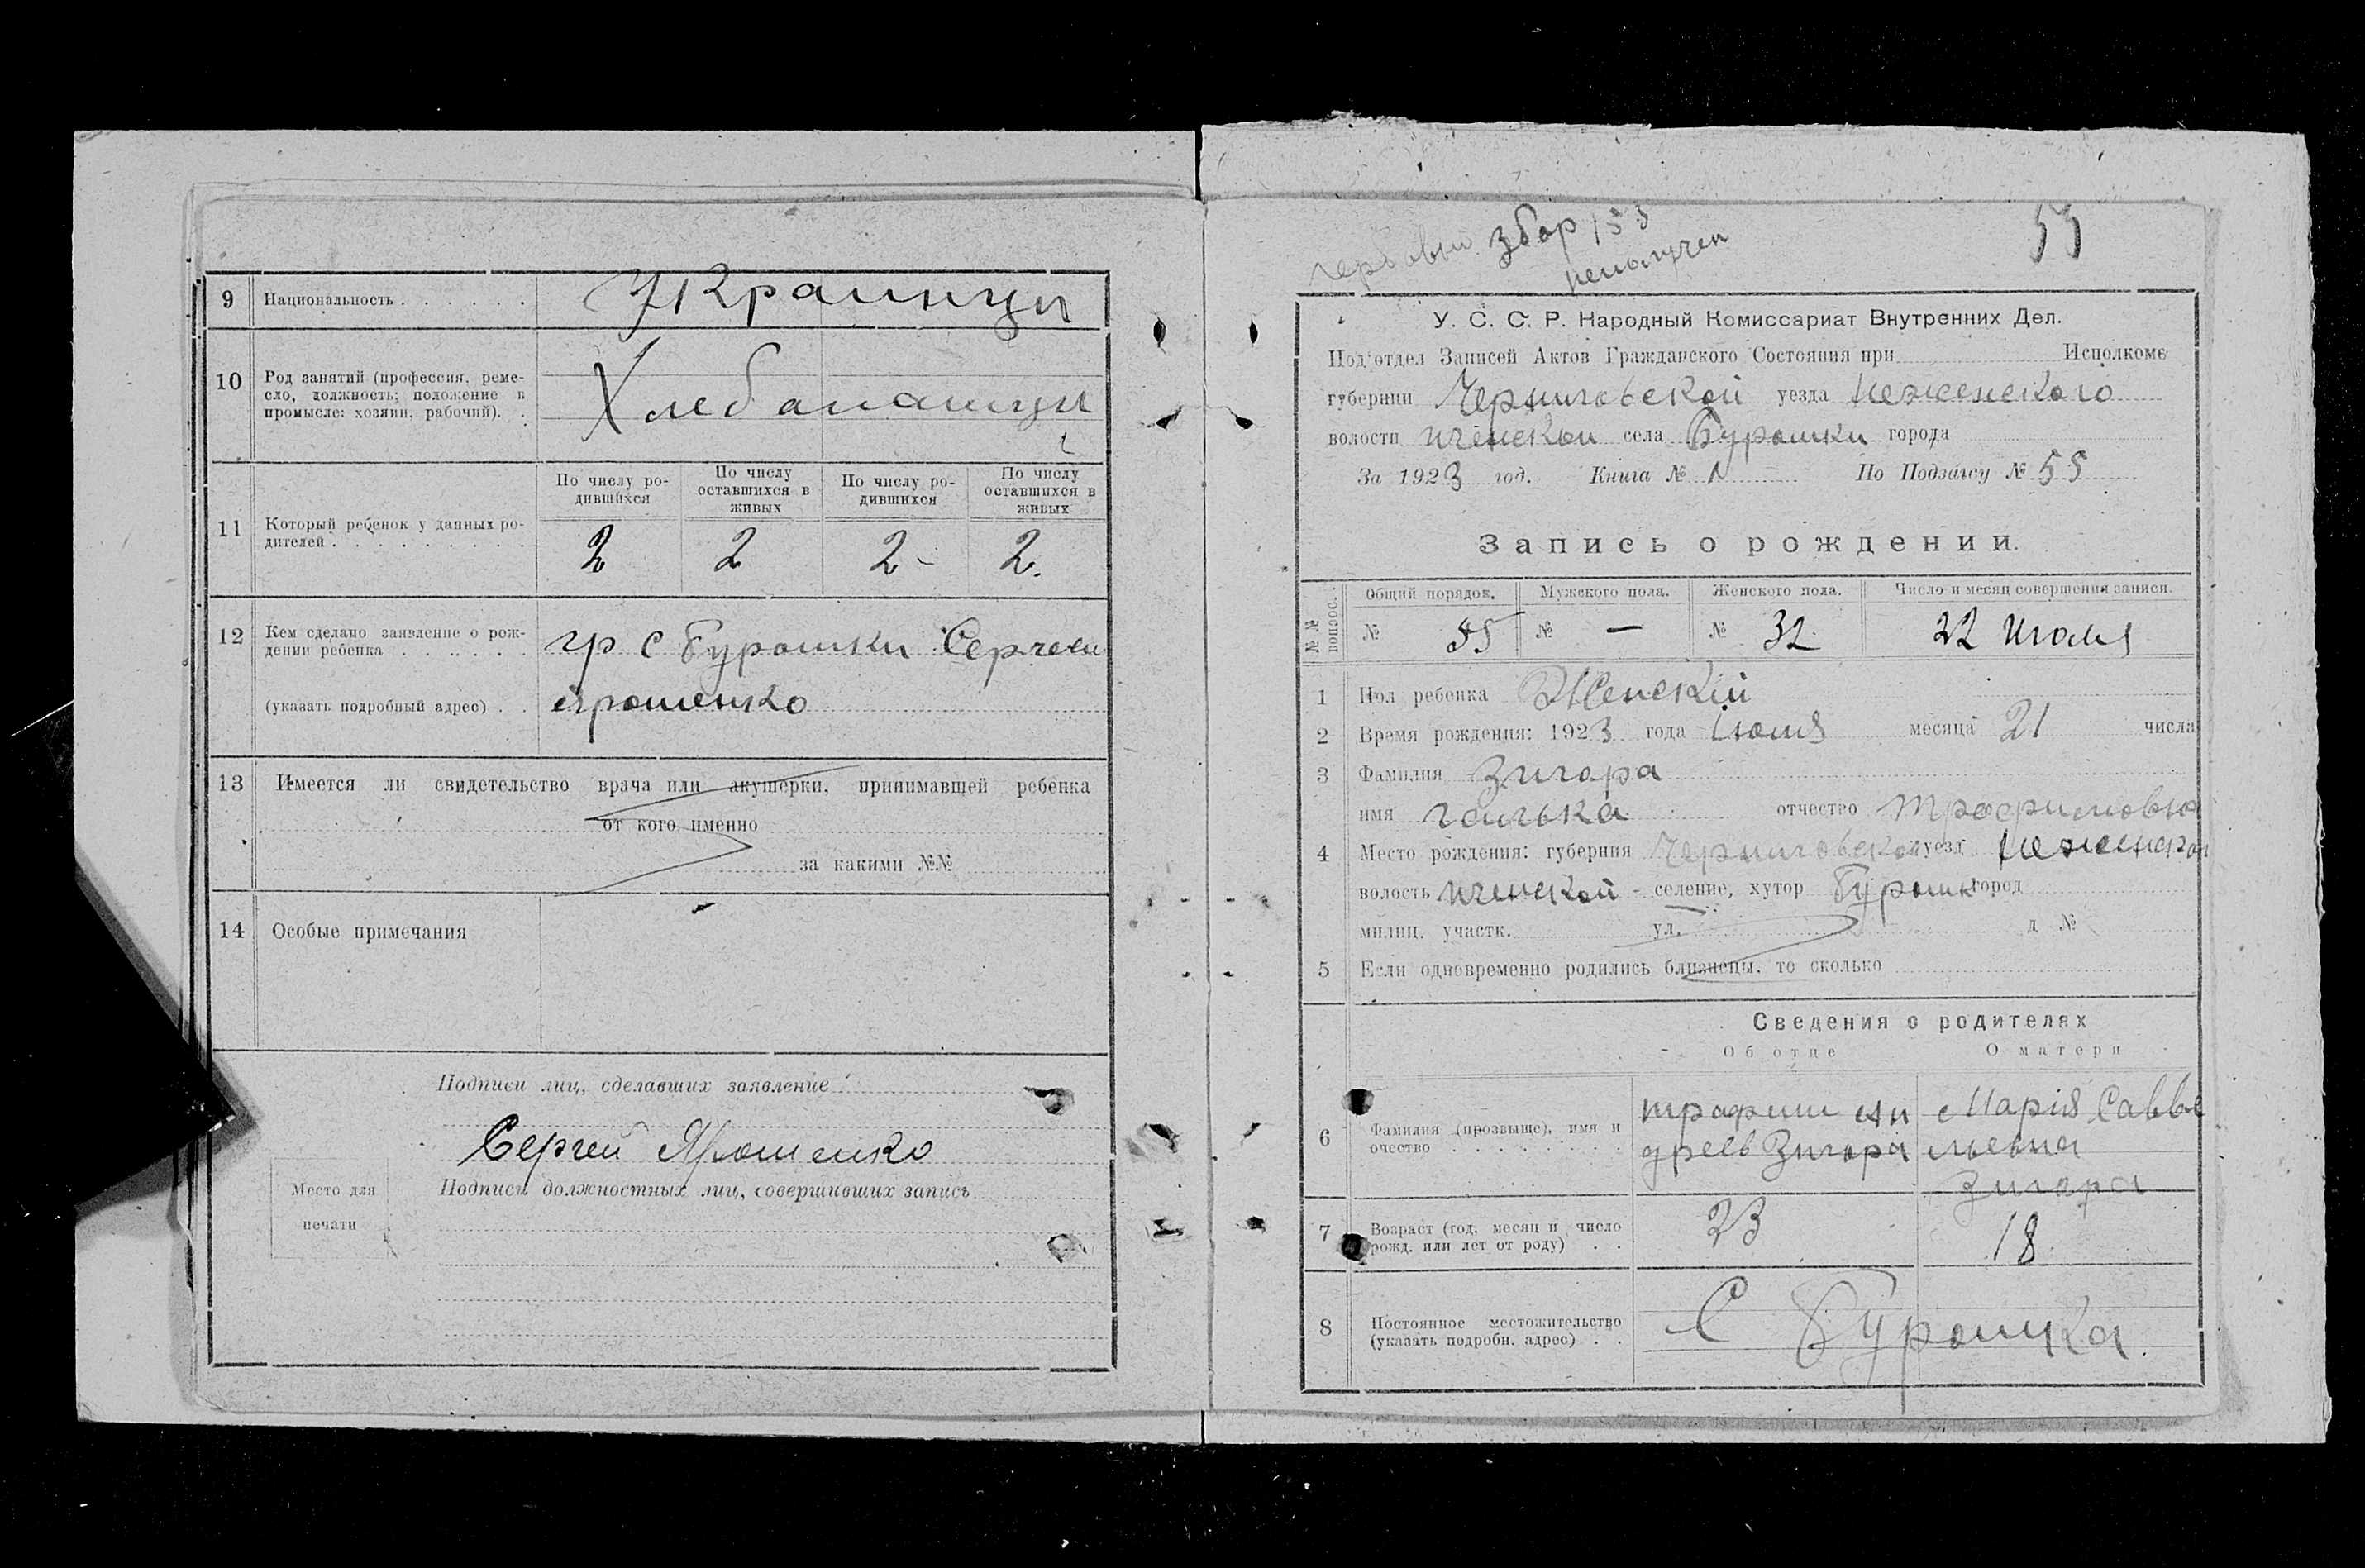 9 Национальность . . . . . . Украинцы
10 Род занятий (профессия, реме-
сло, должность; положение в
промысле: хозяин, рабочий). .
Хлебапашцы
По числу ро-
дившихся
По числу
оставшихся в
живых
По числу ро-
дившихся
По числу
оставшихся в
живых
11 Который ребенок у данных ро-
дителей . . . . . . . . .
2 2 2 2.
12 Кем сделано заявление о рож-
дении ребенка . . . . . .
гр с Бурошки Сергеем
(указать подробный адрес) . . ярошенко
13 Имеется ли свидетельство врача или акушерки, принимавшей ребенка
от кого именно
за какими №№
14 Особые примечания
Подписи лиц, сделавших заявление
Сергей Ярошенко
Место для
печати
Подписи должностных лиц, совершивших запись
збор 153
55
У. С. С. Р. Народный Комиссариат Внутренних Дел.
Под'отдел Записей Актов Гражданского Состояния при Исполкоме
губернии Черниговской уезда Неженского
волости Иченской села Бурошки города
За 1923 год. Книга № По Подзагсу № 55
Запись о рождении.
№№ вопрос. Общий порядок. Мужского пола. Женского пола. Число и месяц совершения записи.
№ 55 № — № 32 22 Июля
1 Пол ребенка Женский
2 Время рождения: 1923 года Июля месяца 21 числа
3 Фамилия Зигора
имя галька отчество Трофимовна
4 Место рождения: губерния Черниговской уезд Неженского
волость Иченской селение, хутор Бурошк город
милиц. участк. ул. д №
5 Если одновременно родились близнецы, то сколько
Сведения о родителях
Об отце О матери
6 Фамилия (прозвыще), имя и
очество . . . . . . . .
трофим Ан
дреев Зигора
Мария Савве
льевна
Зигора
7 Возраст (год, месяц и число
рожд. или лет от роду) . .
23 18
8 Постоянное местожительство
(указать подробн. адрес) . .
С Бурошка